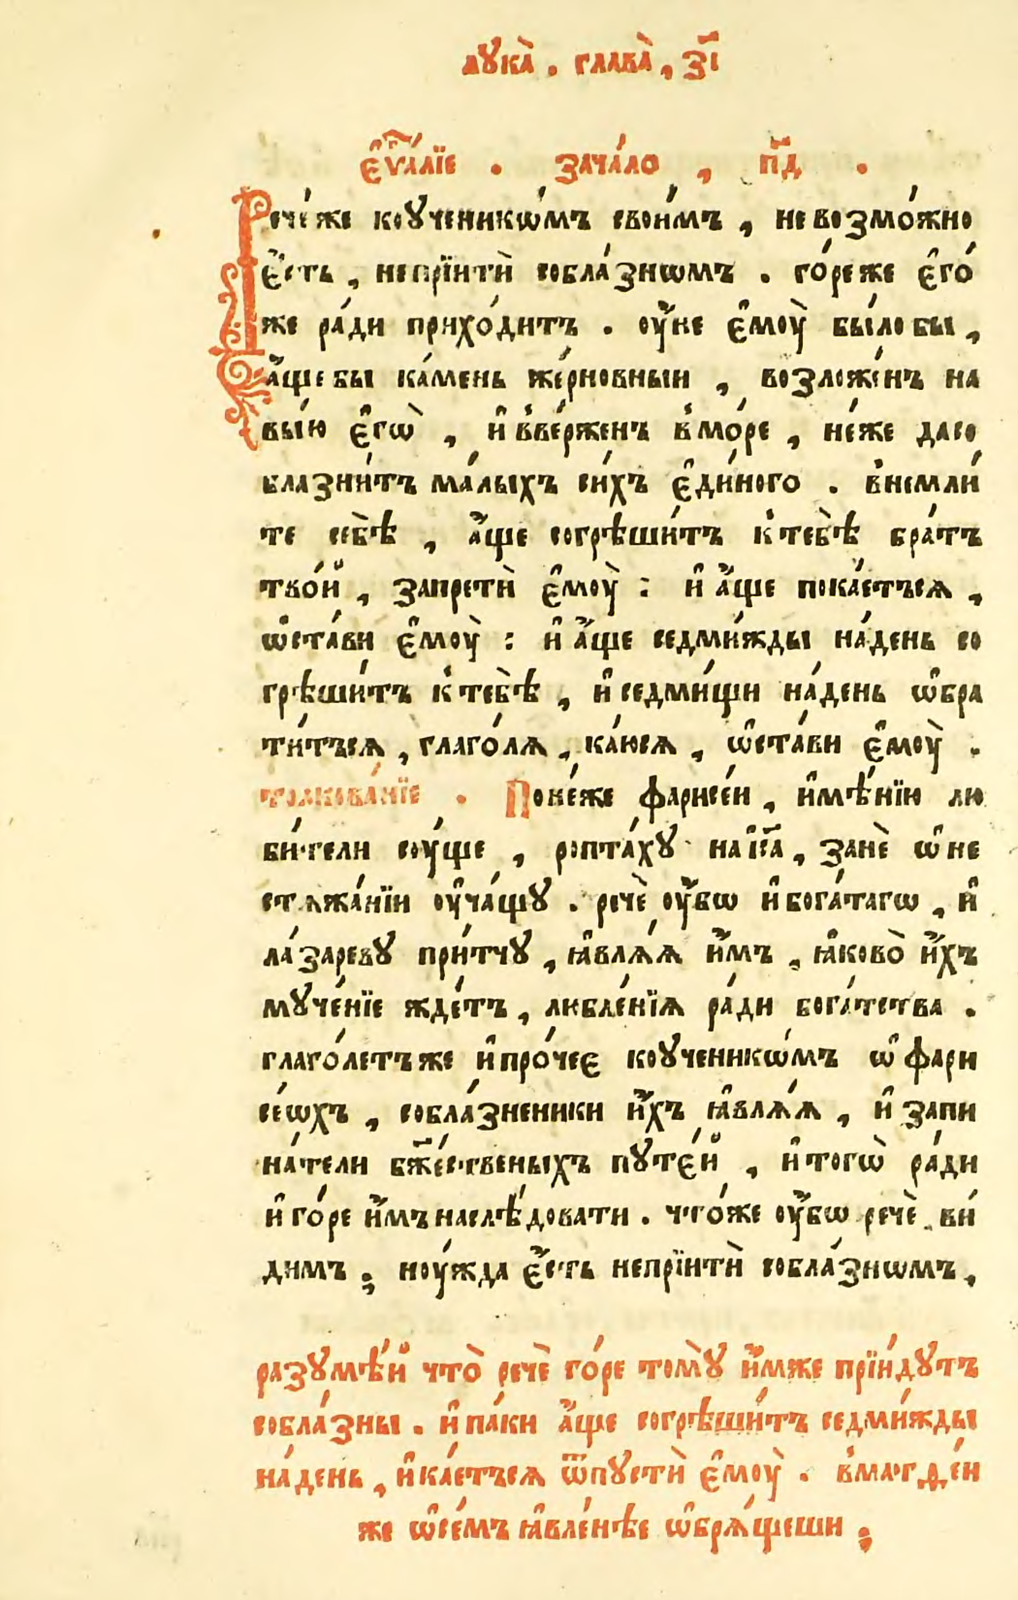 лꙋка̀ . глава̀ , з҃і
є҆ѵⷢ҇а́лїе . зача́ло , п҃д .
Рече́ же коученикѡ́мъ свои́мъ , не возмо́жно
є҆́сть , непрїитѝ собла́знѡмъ . го́ре же є҆го́
же ра́ди прихо́дитъ . оу҆́не є҆моу̀ бы́ло бы ,
а҆́ще бы ка́мень же́рновныи , возложе́нъ на
вы́ю є҆гѡ̀ , и҆ вве́рженъ в̾мо́ре , не́же да со
блазни́тъ ма́лыхъ си́хъ є҆ди́ного . внемли́
те себѣ̀ , а҆́ще согрѣши́тъ к̾тебѣ̀ бра́тъ
тво́й , запретѝ є҆моу̀ : и҆ а҆́ще пока́етъсѧ ,
ѡ҆ста́ви є҆моу̀ : и҆ а҆́ще седми́жды на́день со
грѣши́тъ к̾тебѣ̀ , и҆ седми́щи на́день ѡ҆бра
ти́тъсѧ , глаго́лѧ , ка́юсѧ , ѡ҆ста́ви є҆моу̀ .
толкова́нїе . Поне́же фарисе́и , и҆мѣ́нїю лю
би́тели соу́ще , ропта́хꙋ на і҆с҃а , занѐ ѡ҆ не
стѧжа́нїи оу҆ча́щꙋ . речѐ оу҆́бѡ и҆ бога́тагѡ , и҆
ла́заревꙋ при́тчꙋ , ꙗ҆влѧ́ѧ и҆́мъ , ꙗ҆ково̀ и҆́хъ
мꙋче́нїе жде́тъ , любле́нїѧ ра́ди бога́тства .
глаго́летъ же и҆ про́чеє коученикѡ́мъ ѡ҆ фари
се́ѡхъ , собла́зненики и҆́хъ ꙗ҆влѧ́ѧ , и҆ запи
на́тели бжⷭ҇е́ственыхъ пꙋте́й , и҆ тогѡ̀ ра́ди
и҆ го́ре и҆́мъ наслѣ́довати . что́же оу҆́бѡ речѐ ви́
димъ ; ноу́жда є҆́сть непрїитѝ собла́знѡмъ ,
разꙋмѣ́й что̀ речѐ го́ре томꙋ̀ и҆́мже прїи́дꙋтъ
собла́зны . и҆ па́ки а҆́ще согрѣши́тъ седми́жды
на́день , и҆ ка́етъсѧ ѿпꙋстѝ є҆моу̀ . в̾матѳе́и
же ѡ҆се́мъ ꙗ҆вле́нѣе ѡ҆брѧ́щеши ;